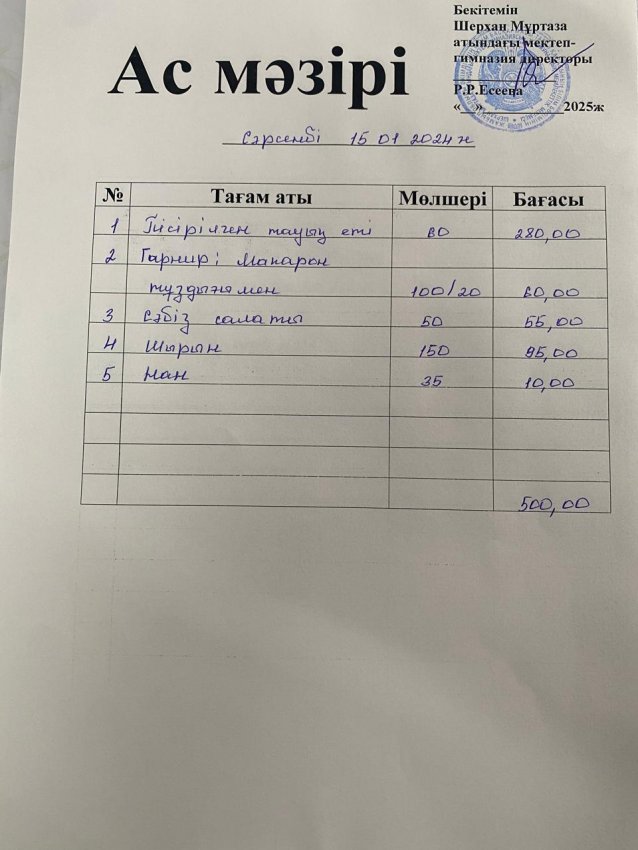 Бекітемін
Шерхан Мұртаза
атындағы мектеп-
гимназия директоры
Р.Р.Есеева
« » 2025ж
Ас мәзірі
Сәрсенбі 15 01 2024 ж
№ Тағам аты Мөлшері Бағасы
1 Пісірілген тауық еті 60 280,00
2 Гарнир: Макарон
тұздықпен 100/20 60,00
3 Сәбіз салаты 50 55,00
4 Шырын 150 95,00
5 Нан 35 10,00
500,00